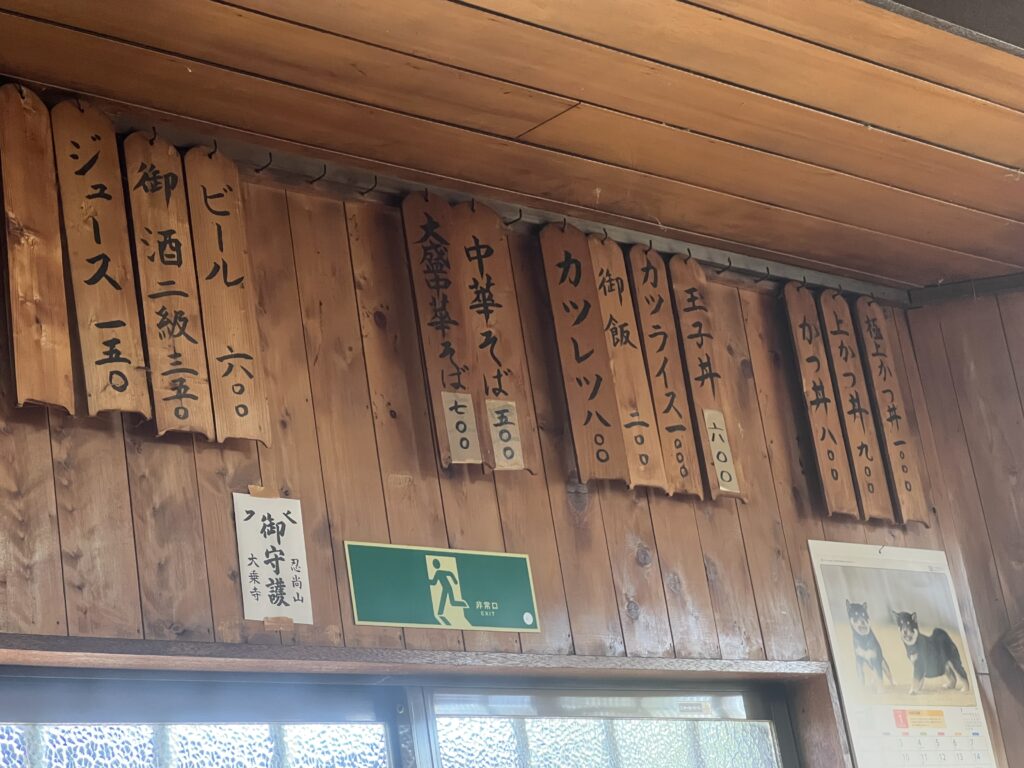 ジュース 一五〇
御酒二級三五〇
ビール 六〇〇
大盛中華そば 七〇〇
中華そば 五〇〇
カツレツ八〇〇
御飯 二〇〇
カツライス一〇〇〇
玉子丼 六〇〇
かつ丼 八〇〇
上かつ丼 九〇〇
極上かつ丼 一〇〇〇
御守護
忍尚山
大乗寺
非常口
EXIT